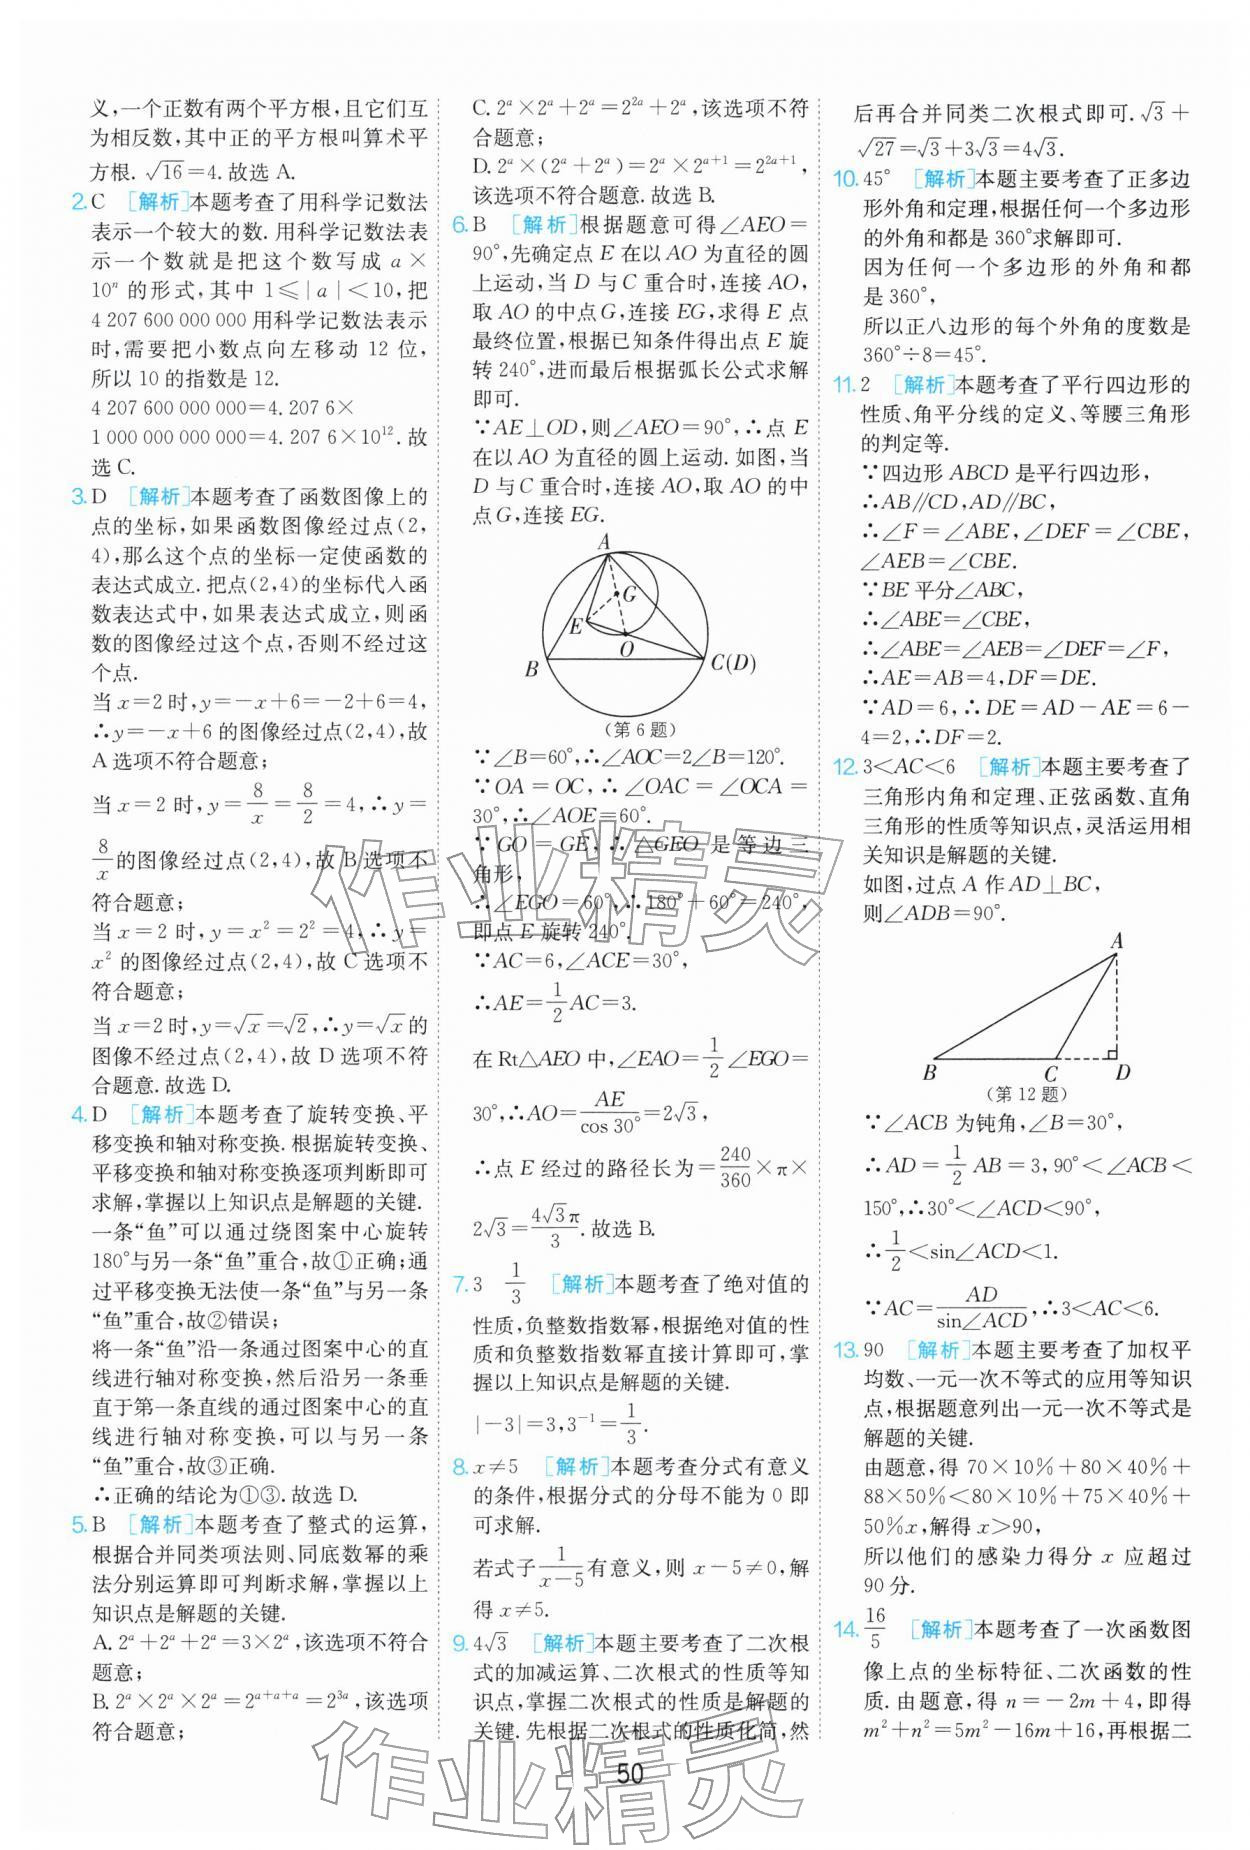 义，一个正数有两个平方根，且它们互
为相反数，其中正的平方根叫算术平
方根. √16=4. 故选 A.
2. C [解析]本题考查了用科学记数法
表示一个较大的数. 用科学记数法表
示一个数就是把这个数写成 a×
10ⁿ 的形式，其中 1≤|a|<10，把
4 207 600 000 000 用科学记数法表示
时，需要把小数点向左移动 12 位，
所以 10 的指数是 12.
4 207 600 000 000=4. 207 6×
1 000 000 000 000=4. 207 6×10¹². 故
选 C.
3. D [解析]本题考查了函数图像上的
点的坐标，如果函数图像经过点(2,
4)，那么这个点的坐标一定使函数的
表达式成立. 把点(2,4)的坐标代入函
数表达式中，如果表达式成立，则函
数的图像经过这个点，否则不经过这
个点.
当 x=2 时，y=−x+6=−2+6=4，
∴y=−x+6 的图像经过点(2,4)，故
A 选项不符合题意；
当 x=2 时，y=8/x=8/2=4，∴y=
8/x 的图像经过点(2,4)，故 B 选项不
符合题意；
当 x=2 时，y=x²=2²=4，∴y=
x² 的图像经过点(2,4)，故 C 选项不
符合题意；
当 x=2 时，y=√x=√2，∴y=√x的
图像不经过点(2,4)，故 D 选项不符
合题意. 故选 D.
4. D [解析]本题考查了旋转变换、平
移变换和轴对称变换. 根据旋转变换、
平移变换和轴对称变换逐项判断即可
求解，掌握以上知识点是解题的关键.
一条“鱼”可以通过绕图案中心旋转
180°与另一条“鱼”重合，故①正确；通
过平移变换无法使一条“鱼”与另一条
“鱼”重合，故②错误；
将一条“鱼”沿一条通过图案中心的直
线进行轴对称变换，然后沿另一条垂
直于第一条直线的通过图案中心的直
线进行轴对称变换，可以与另一条
“鱼”重合，故③正确.
∴正确的结论为①③. 故选 D.
5. B [解析]本题考查了整式的运算，
根据合并同类项法则、同底数幂的乘
法分别运算即可判断求解，掌握以上
知识点是解题的关键.
A. 2ᵃ+2ᵃ+2ᵃ=3×2ᵃ，该选项不符合
题意；
B. 2ᵃ×2ᵃ×2ᵃ=2ᵃ⁺ᵃ⁺ᵃ=2³ᵃ，该选项
符合题意；
C. 2ᵃ×2ᵃ+2ᵃ=2²ᵃ+2ᵃ，该选项不符
合题意；
D. 2ᵃ×(2ᵃ+2ᵃ)=2ᵃ×2ᵃ⁺¹=2²ᵃ⁺¹，
该选项不符合题意. 故选 B.
6. B [解析]根据题意可得∠AEO=
90°，先确定点 E 在以 AO 为直径的圆
上运动，当 D 与 C 重合时，连接 AO，
取 AO 的中点 G，连接 EG，求得 E 点
最终位置，根据已知条件得出点 E 旋
转 240°，进而最后根据弧长公式求解
即可.
∵AE⊥OD，则∠AEO=90°，∴点 E
在以 AO 为直径的圆上运动. 如图，当
D 与 C 重合时，连接 AO，取 AO 的中
点 G，连接 EG.
A
G
E
O
B
C(D)
(第 6 题)
∵∠B=60°，∴∠AOC=2∠B=120°.
∵OA=OC，∴∠OAC=∠OCA=
30°，∴∠AOE=60°.
∵GO=GE，∴△GEO 是等边三
角形，
∴∠EGO=60°，∴180°+60°=240°，
即点 E 旋转 240°.
∵AC=6，∠ACE=30°，
∴AE=1/2 AC=3.
在 Rt△AEO 中，∠EAO=1/2∠EGO=
30°，∴AO=AE/cos 30°=2√3，
∴点 E 经过的路径长为=240/360×π×
2√3=4√3π/3. 故选 B.
7. 3 1/3 [解析]本题考查了绝对值的
性质，负整数指数幂，根据绝对值的性
质和负整数指数幂直接计算即可，掌
握以上知识点是解题的关键.
|−3|=3，3⁻¹=1/3.
8. x≠5 [解析]本题考查分式有意义
的条件，根据分式的分母不能为 0 即
可求解.
若式子1/(x−5)有意义，则 x−5≠0，解
得 x≠5.
9. 4√3 [解析]本题主要考查了二次根
式的加减运算、二次根式的性质等知
识点，掌握二次根式的性质是解题的
关键. 先根据二次根式的性质化简，然
后再合并同类二次根式即可. √3+
√27=√3+3√3=4√3.
10. 45° [解析]本题主要考查了正多边
形外角和定理，根据任何一个多边形
的外角和都是 360°求解即可.
因为任何一个多边形的外角和都
是 360°，
所以正八边形的每个外角的度数是
360°÷8=45°.
11. 2 [解析]本题考查了平行四边形的
性质、角平分线的定义、等腰三角形
的判定等.
∵四边形 ABCD 是平行四边形，
∴AB∥CD，AD∥BC，
∴∠F=∠ABE，∠DEF=∠CBE，
∠AEB=∠CBE.
∵BE 平分∠ABC，
∴∠ABE=∠CBE，
∴∠ABE=∠AEB=∠DEF=∠F，
∴AE=AB=4，DF=DE.
∵AD=6，∴DE=AD−AE=6−
4=2，∴DF=2.
12. 3<AC<6 [解析]本题主要考查了
三角形内角和定理、正弦函数、直角
三角形的性质等知识点，灵活运用相
关知识是解题的关键.
如图，过点 A 作 AD⊥BC，
则∠ADB=90°.
A
B
C
D
(第 12 题)
∵∠ACB 为钝角，∠B=30°，
∴AD=1/2 AB=3，90°<∠ACB<
150°，∴30°<∠ACD<90°，
∴1/2<sin∠ACD<1.
∵AC=AD/sin∠ACD，∴3<AC<6.
13. 90 [解析]本题主要考查了加权平
均数、一元一次不等式的应用等知识
点，根据题意列出一元一次不等式是
解题的关键.
由题意，得 70×10%+80×40%+
88×50%<80×10%+75×40%+
50%x，解得 x>90，
所以他们的感染力得分 x 应超过
90 分.
14. 16/5 [解析]本题考查了一次函数图
像上点的坐标特征、二次函数的性
质. 由题意，得 n=−2m+4，即得
m²+n²=5m²−16m+16，再根据二
50
作业精灵
作业精灵